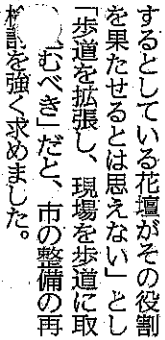 するとしている花壇がその役割
を果たせるとは思えない」とし
「歩道を拡張し、現場を歩道に取
むべき」だと、市の整備の再
を強く求めました。